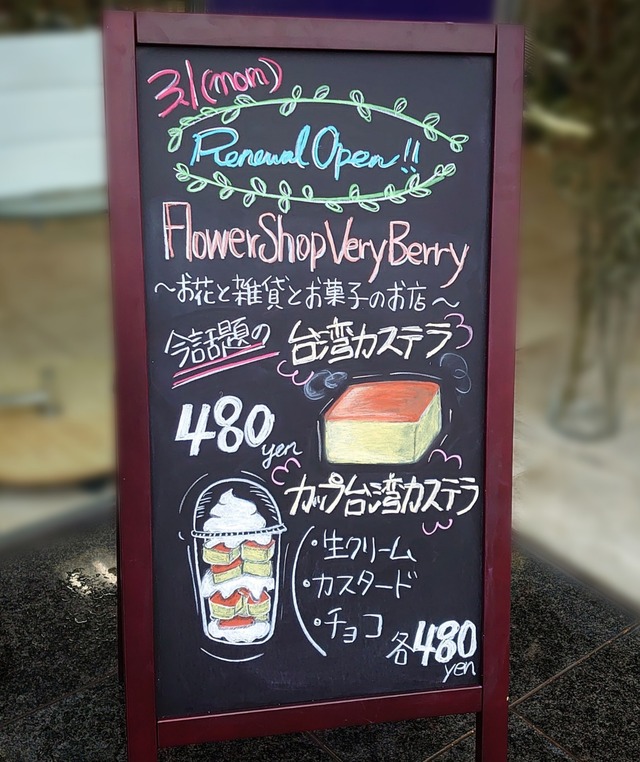 3/1(mon)
Renewal Open!!
FlowerShopVeryBerry
〜お花と雑貨とお菓子のお店〜
今話題の 台湾カステラ
480 yen
カップ台湾カステラ
・生クリーム
・カスタード
・チョコ
各480 yen